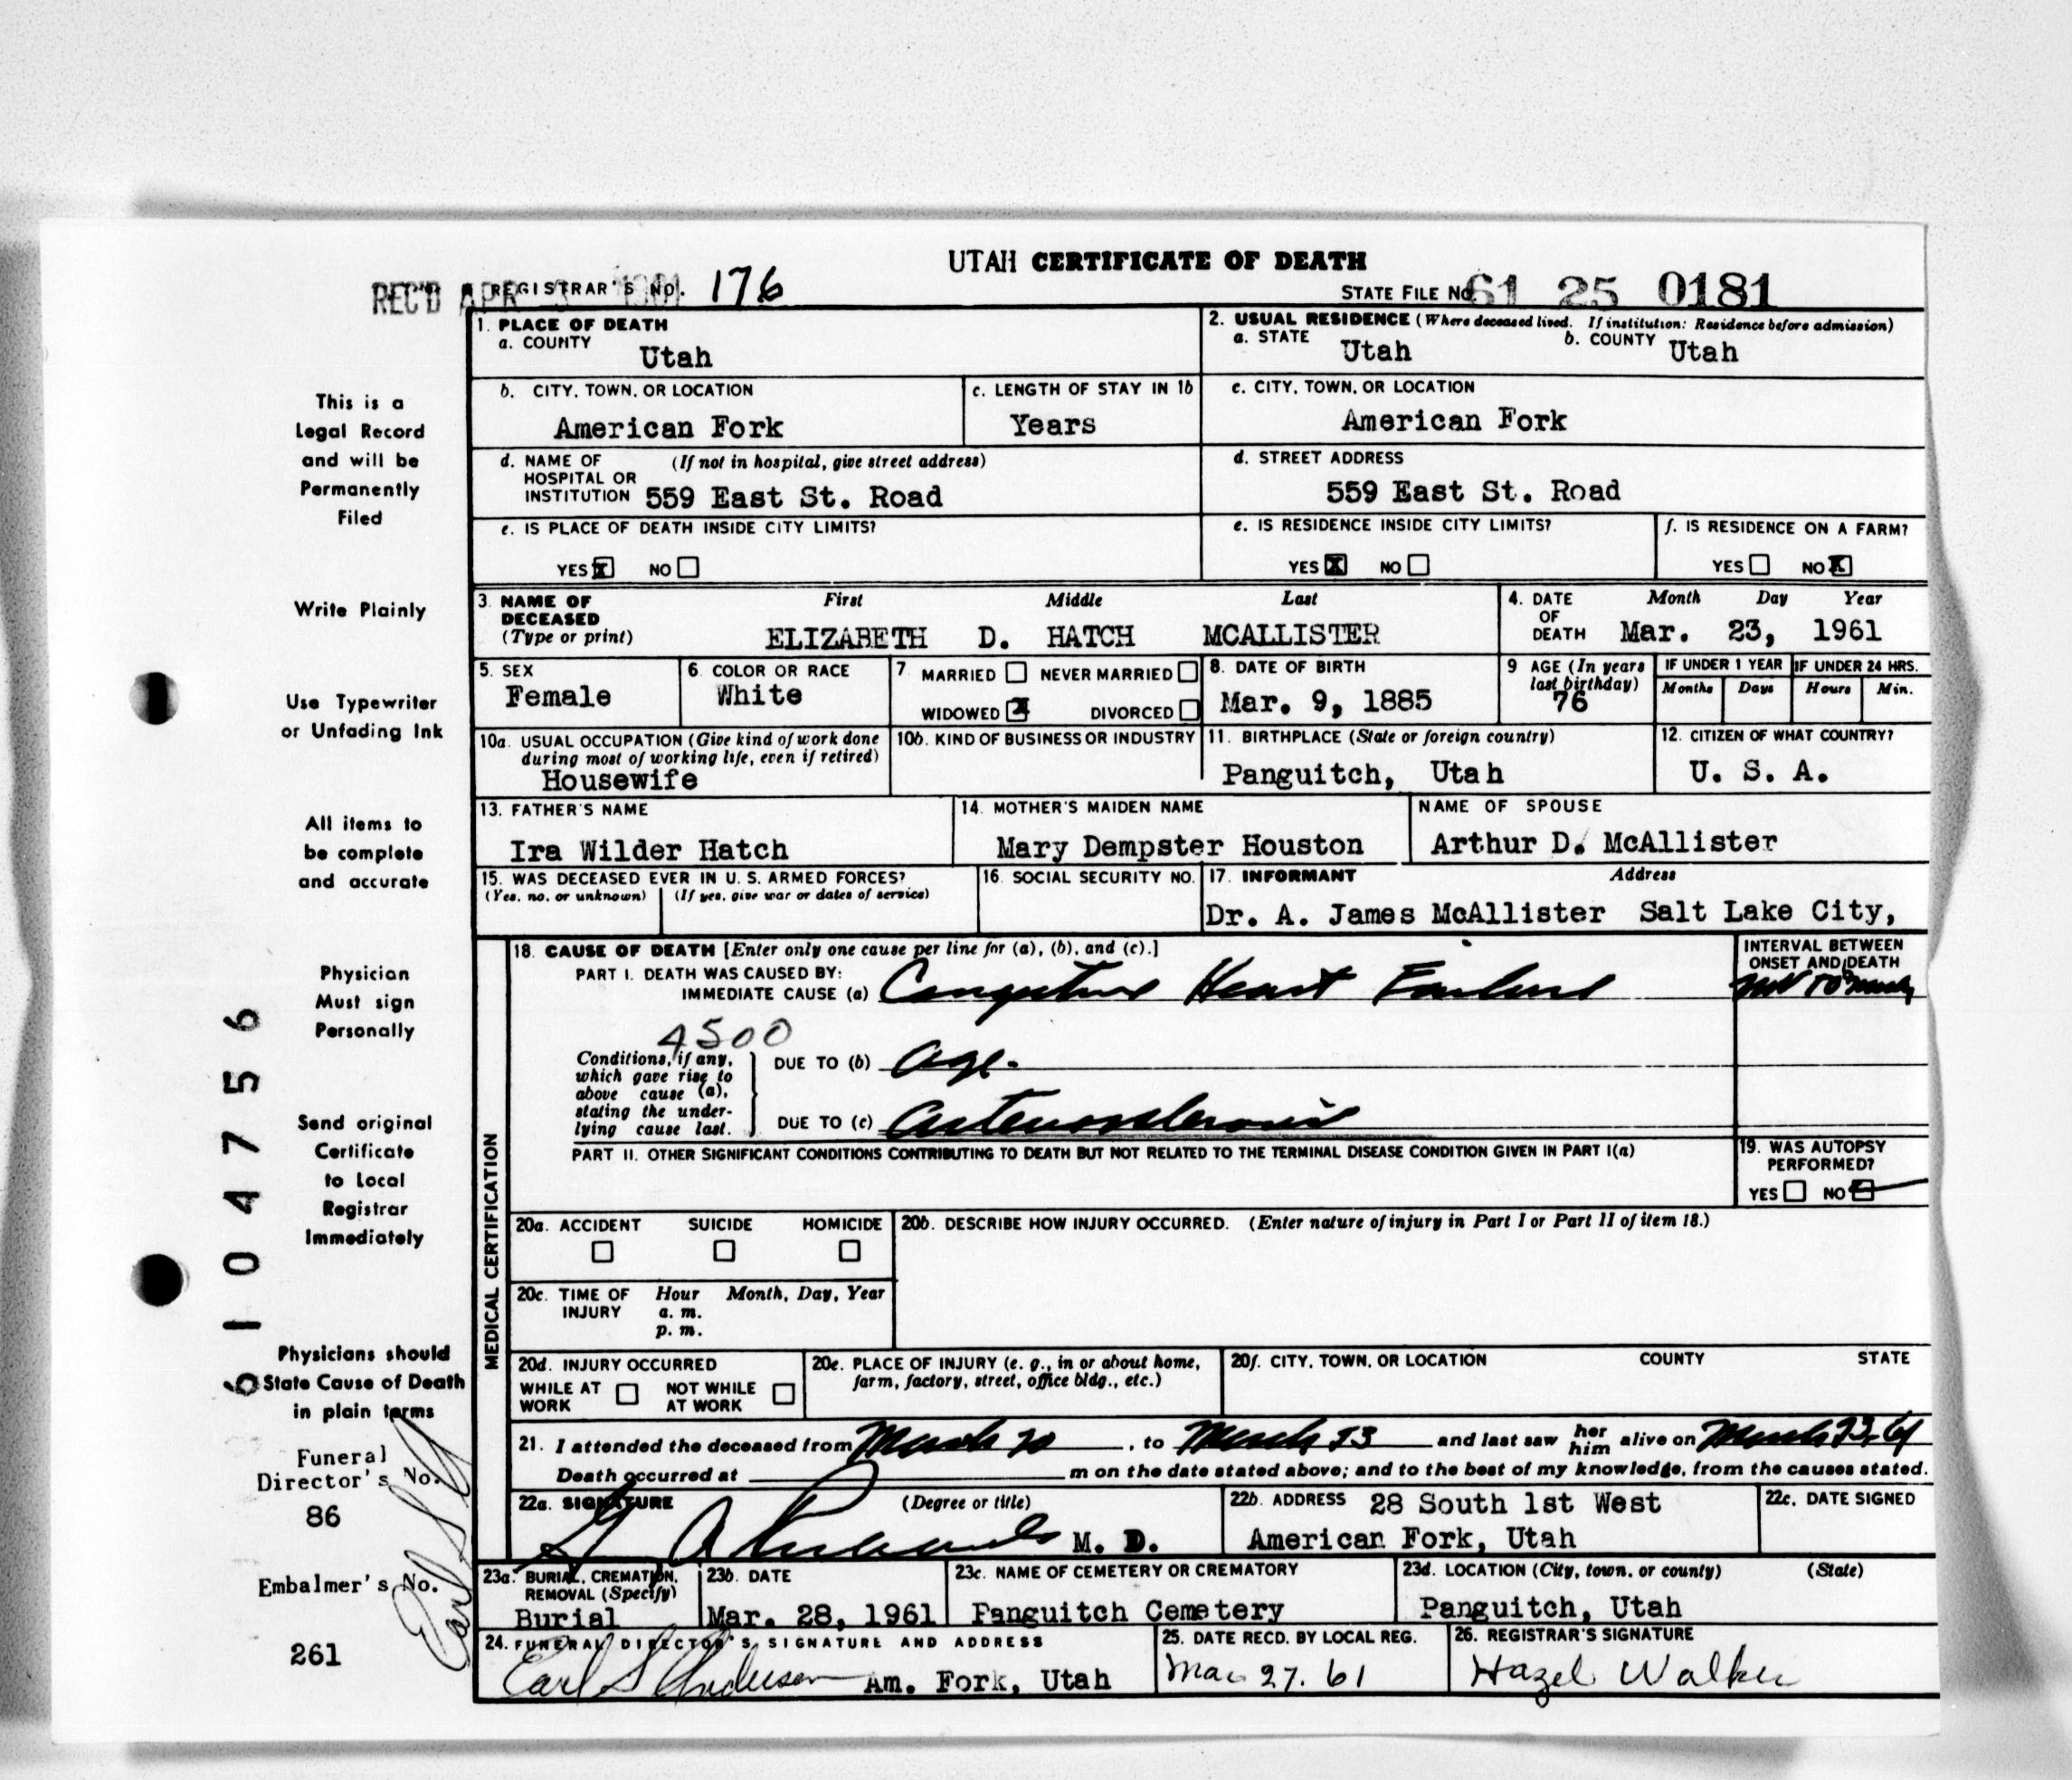 UTAH CERTIFICATE OF DEATH
REC'D APR 1961 REGISTRAR'S NO. 176
STATE FILE NO. 61 25 0181
1. PLACE OF DEATH
a. COUNTY
Utah
2. USUAL RESIDENCE (Where deceased lived. If institution: Residence before admission)
a. STATE Utah b. COUNTY Utah
b. CITY, TOWN, OR LOCATION
American Fork
c. LENGTH OF STAY IN 1b
Years
c. CITY, TOWN, OR LOCATION
American Fork
d. NAME OF HOSPITAL OR INSTITUTION (If not in hospital, give street address)
559 East St. Road
d. STREET ADDRESS
559 East St. Road
e. IS PLACE OF DEATH INSIDE CITY LIMITS?
YES X NO
e. IS RESIDENCE INSIDE CITY LIMITS?
YES X NO
f. IS RESIDENCE ON A FARM?
YES NO X
3. NAME OF DECEASED (Type or print)
First Middle Last
ELIZABETH D. HATCH MCALLISTER
4. DATE OF DEATH
Month Day Year
Mar. 23, 1961
5. SEX
Female
6. COLOR OR RACE
White
7 MARRIED NEVER MARRIED
WIDOWED X DIVORCED
8. DATE OF BIRTH
Mar. 9, 1885
9 AGE (In years last birthday)
76
IF UNDER 1 YEAR
Months Days
IF UNDER 24 HRS.
Hours Min.
10a. USUAL OCCUPATION (Give kind of work done during most of working life, even if retired)
Housewife
10b. KIND OF BUSINESS OR INDUSTRY
11. BIRTHPLACE (State or foreign country)
Panguitch, Utah
12. CITIZEN OF WHAT COUNTRY?
U. S. A.
13. FATHER'S NAME
Ira Wilder Hatch
14. MOTHER'S MAIDEN NAME
Mary Dempster Houston
NAME OF SPOUSE
Arthur D. McAllister
15. WAS DECEASED EVER IN U. S. ARMED FORCES?
(Yes, no, or unknown) (If yes, give war or dates of service)
16. SOCIAL SECURITY NO.
17. INFORMANT Address
Dr. A. James McAllister Salt Lake City,
MEDICAL CERTIFICATION
18. CAUSE OF DEATH [Enter only one cause per line for (a), (b), and (c).]
PART I. DEATH WAS CAUSED BY:
IMMEDIATE CAUSE (a) Congestive Heart Failure
INTERVAL BETWEEN ONSET AND DEATH
4500
Conditions, if any, which gave rise to above cause (a), stating the underlying cause last.
DUE TO (b) age.
DUE TO (c) arteriosclerosis
PART II. OTHER SIGNIFICANT CONDITIONS CONTRIBUTING TO DEATH BUT NOT RELATED TO THE TERMINAL DISEASE CONDITION GIVEN IN PART I(a)
19. WAS AUTOPSY PERFORMED?
YES NO
20a. ACCIDENT SUICIDE HOMICIDE
20b. DESCRIBE HOW INJURY OCCURRED. (Enter nature of injury in Part I or Part II of item 18.)
20c. TIME OF INJURY Hour Month, Day, Year
a. m.
p. m.
20d. INJURY OCCURRED
WHILE AT WORK NOT WHILE AT WORK
20e. PLACE OF INJURY (e. g., in or about home, farm, factory, street, office bldg., etc.)
20f. CITY, TOWN, OR LOCATION COUNTY STATE
21. I attended the deceased from March 20, to March 23 and last saw her him alive on March 23, 61
Death occurred at m on the date stated above; and to the best of my knowledge, from the causes stated.
22a. SIGNATURE (Degree or title)
M. D.
22b. ADDRESS 28 South 1st West
American Fork, Utah
22c. DATE SIGNED
23a. BURIAL, CREMATION, REMOVAL (Specify)
Burial
23b. DATE
Mar. 28, 1961
23c. NAME OF CEMETERY OR CREMATORY
Panguitch Cemetery
23d. LOCATION (City, town, or county) (State)
Panguitch, Utah
24. FUNERAL DIRECTOR'S SIGNATURE AND ADDRESS
Earl S Anderson Am. Fork, Utah
25. DATE RECD. BY LOCAL REG.
Mar 27. 61
26. REGISTRAR'S SIGNATURE
Hazel Walker
This is a
Legal Record
and will be
Permanently
Filed
Write Plainly
Use Typewriter
or Unfading Ink
All items to
be complete
and accurate
Physician
Must sign
Personally
Send original
Certificate
to Local
Registrar
Immediately
Physicians should
State Cause of Death
in plain terms
Funeral
Director's No.
86
Embalmer's No.
261
Earl
6104756